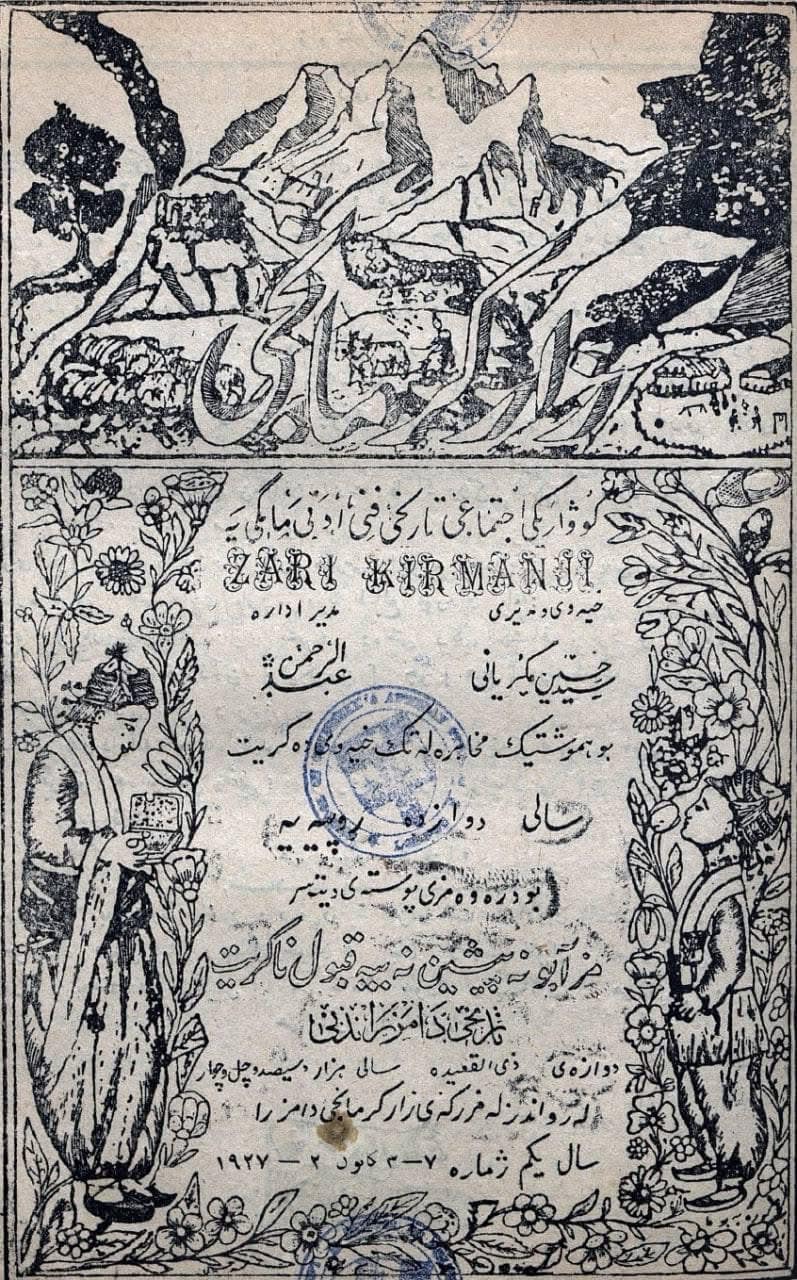 زاری کرمانجی
گوڤاریکی اجتماعی تاریخی فنی أدبی مانگی یه
ZARI KIRMANJI
خیوی و مدیری مدیر اداره
سید حسین مکریانی عبد الرحمن
بو هموشتیک مخابره له تک خیوی ده کریت
سالی دوازده روپیه یه
بو دره وه مزی پوسته ی دیته سر
مز آبونه پیشین نه بیه قبول ناکریت
تاریخی دامزراندنی
دوازه ی ذی القعیده سالی هزار و سیصد و چل و چهار
له رواندز له فررگه ی زار کرمانجی دامزرا
سال یکم ژماره ٧ – ٣ کانون ٢ – ١٩٢٧